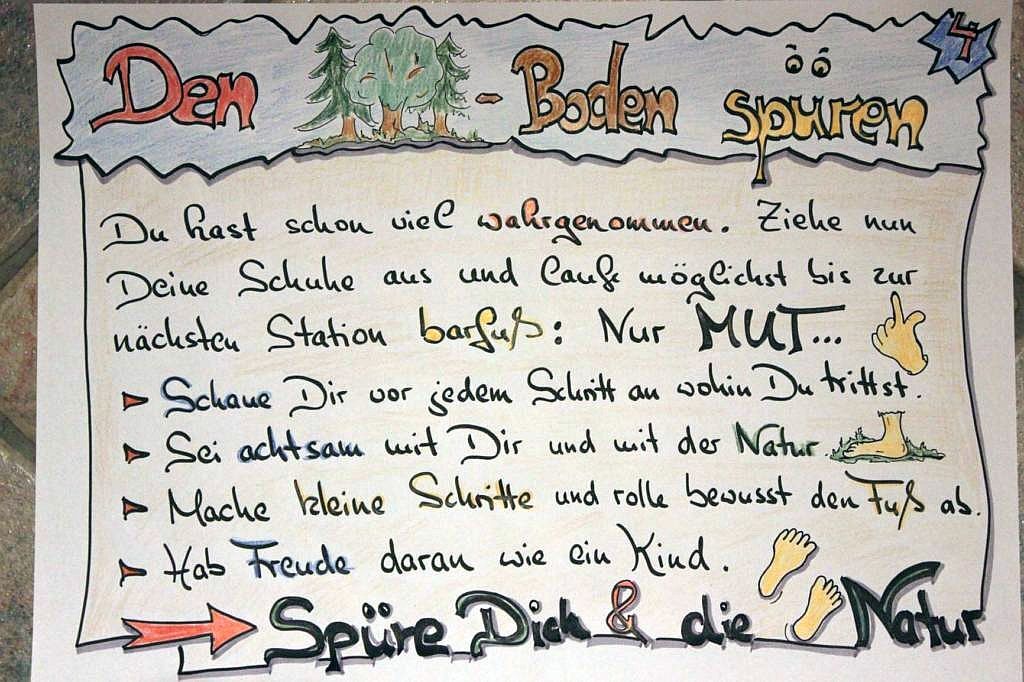 Den - Boden spüren 4
Du hast schon viel wahrgenommen. Ziehe nun
Deine Schuhe aus und laufe möglichst bis zur
nächsten Station barfuß: Nur MUT...
Schaue Dir vor jedem Schritt an wohin Du trittst.
Sei achtsam mit Dir und mit der Natur.
Mache kleine Schritte und rolle bewusst den Fuß ab.
Hab Freude daran wie ein Kind.
Spüre Dich & die Natur